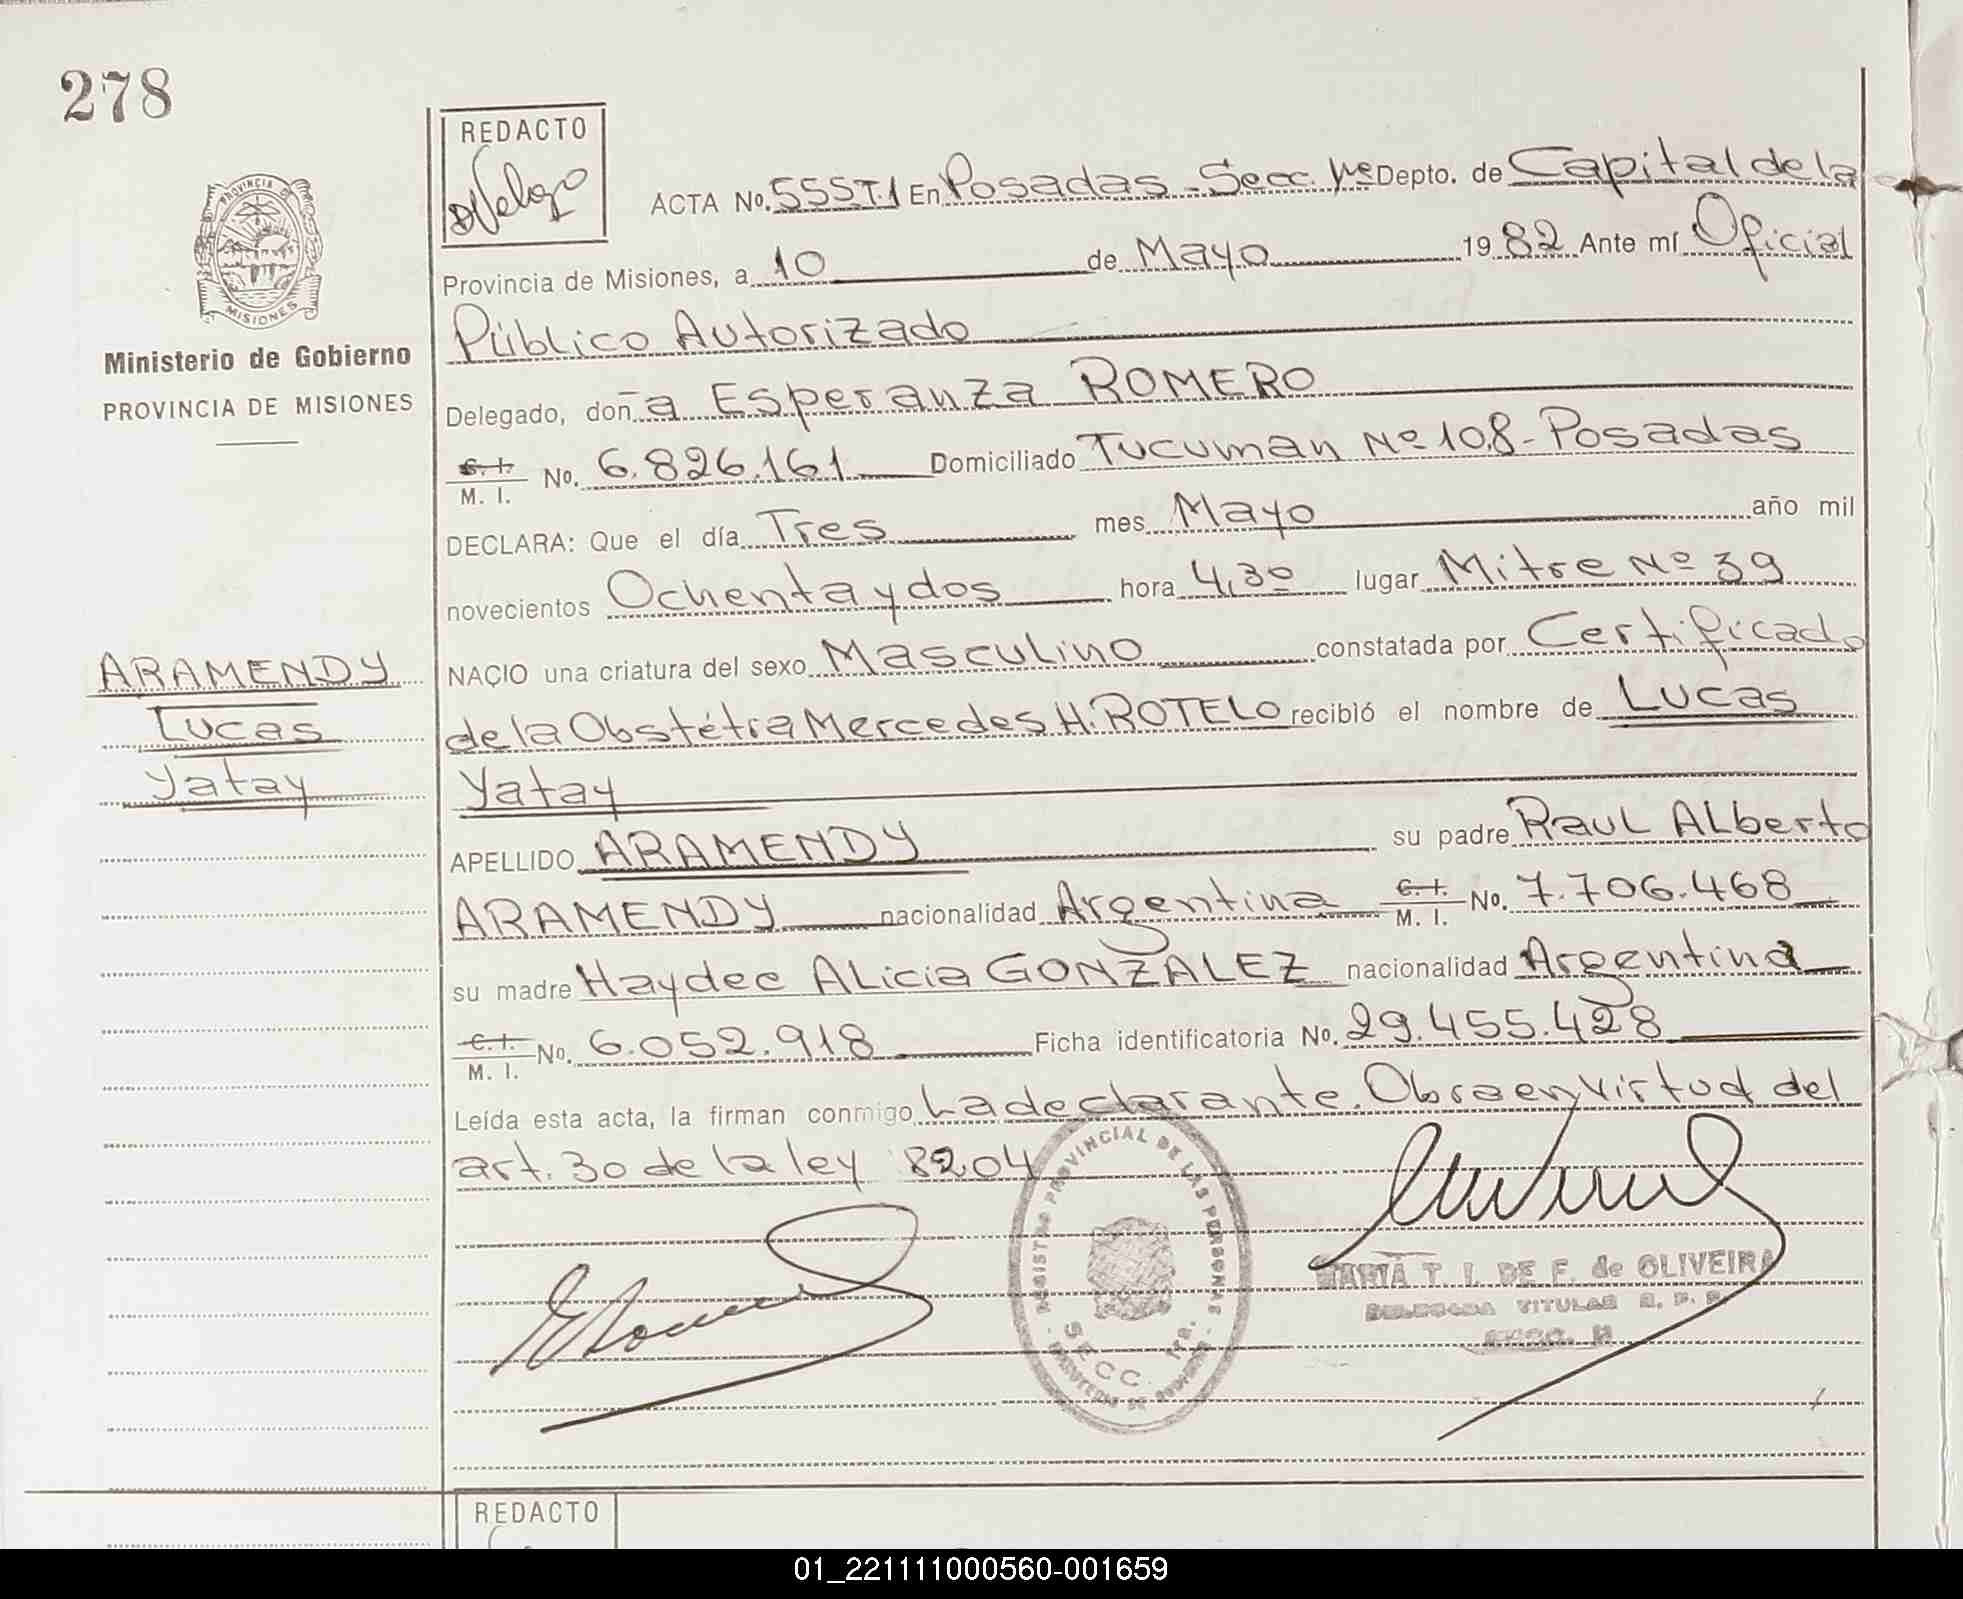 278
REDACTO
PROVINCIA DE
MISIONES
Ministerio de Gobierno
PROVINCIA DE MISIONES
ARAMENDY
Lucas
Yatay
ACTA No. 555T.1 En Posadas - Secc. 1ra Depto. de Capital de la
Provincia de Misiones, a 10 de Mayo 1982 Ante mí Oficial
Público Autorizado
Delegado, doña Esperanza ROMERO
C. I.
M. I. No. 6.826.161 Domiciliado Tucuman Nº 108 - Posadas
DECLARA: Que el día Tres mes Mayo año mil
novecientos Ochenta y dos hora 4,30 lugar Mitre Nº 39
NACIO una criatura del sexo Masculino constatada por Certificado
de la Obstétra Mercedes H. ROTELO recibió el nombre de Lucas
Yatay
APELLIDO ARAMENDY su padre Raul Alberto
ARAMENDY nacionalidad Argentina C. I. M. I. No. 7.706.468
su madre Haydee Alicia GONZALEZ nacionalidad Argentina
C. I.
M. I. No. 6.052.918 Ficha identificatoria No. 29.455.428
Leída esta acta, la firman conmigo La declarante. Obra en virtud del
art. 30 de la ley 8204
REGISTRO PROVINCIAL DE LAS PERSONAS
SECC. 1ra.
MINISTERIO DE GOBIERNO
MARIA T. I. DE F. de OLIVEIRA
DELEGADA TITULAR R. P. P.
REDACTO
01_221111000560-001659